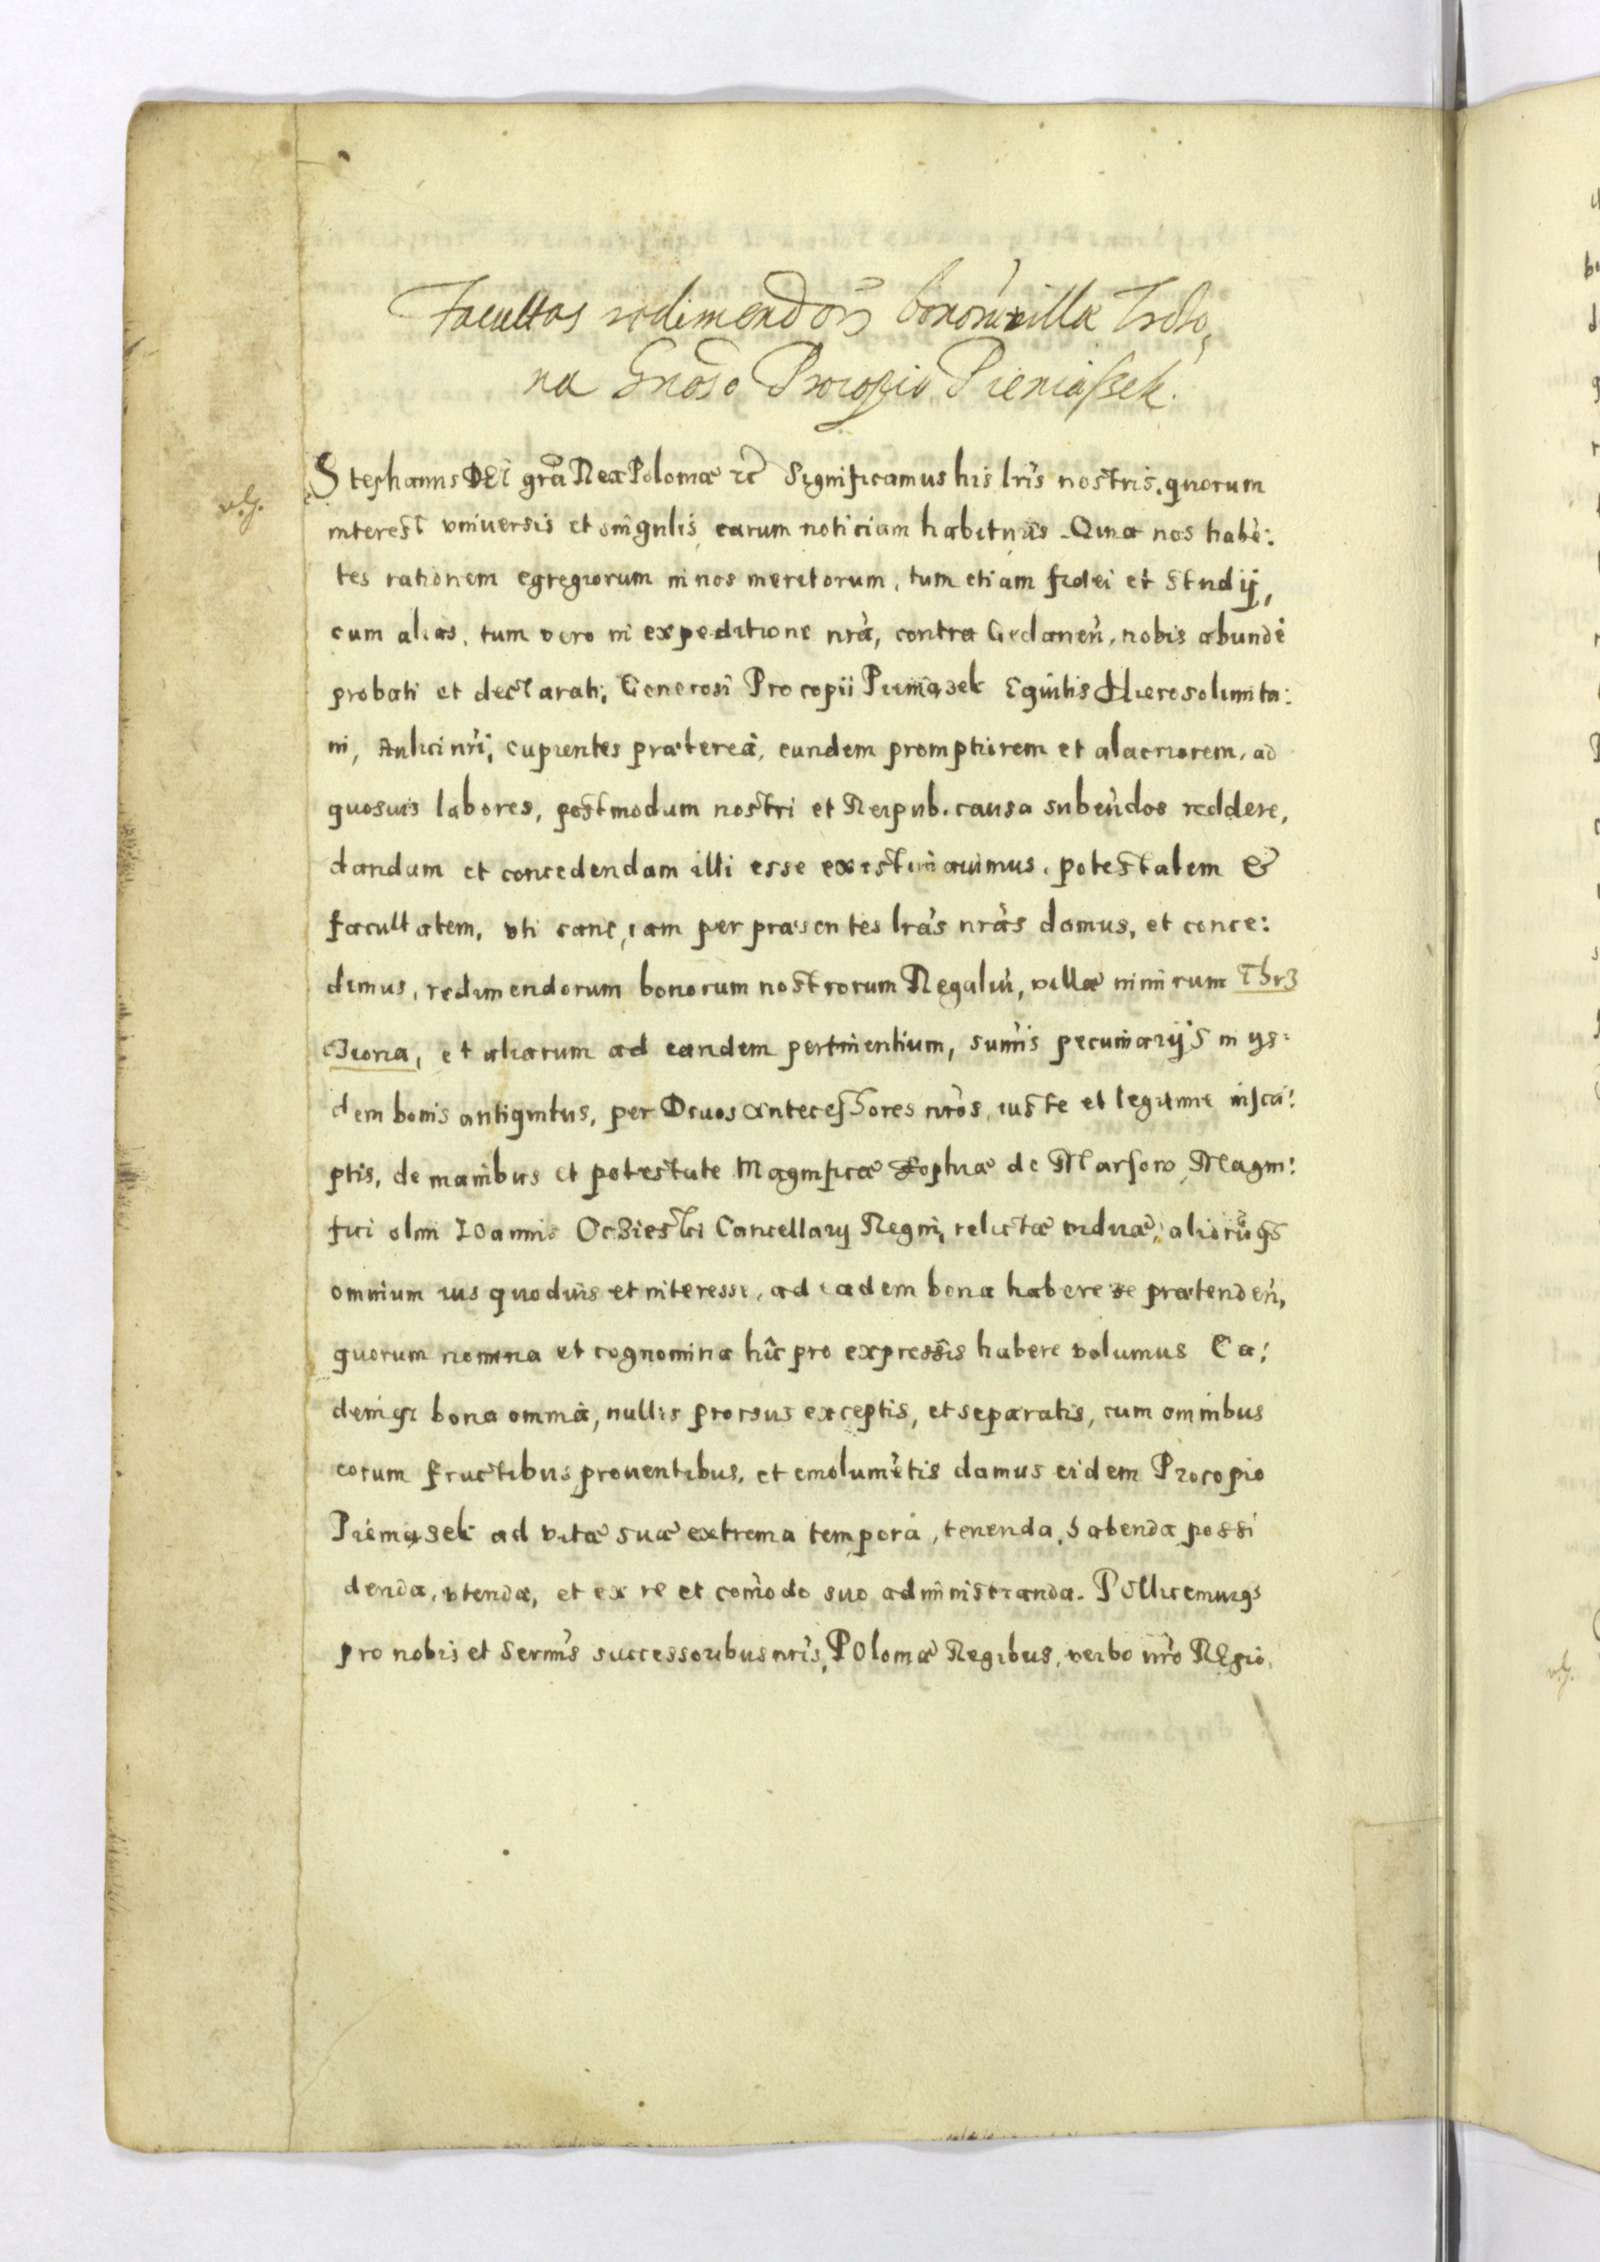 Facultas redimendorũ bonorũ villæ Trzcio,
na Gnoso Procopio Pieniaßek.
Stephanus DEI grã Rex Poloniæ ꝛc̃ Significamus his lr̃is nostris. quorum
interest vniversis et singulis earum noticiam habituris. Quia nos habẽ:
tes rationem egregiorum in nos meritorum, tum etiam fidei et studij,
cum alias, tum vero in expeditione nr̃a, contra Gedanen̾, nobis abundè
probati et declarati, Generosi Procopii Pieniązek Equitis Hierosolimita:
ni, Aulici nr̃i, cupientes prætereà, eundem promptiorem et alacriorem, ad
quosuis labores, postmodum nostri et Reipub. causa subeũdos reddere,
dandam et concedendam illi esse existimauimus, potestatem &
facultatem, vti sane, iam per præsentes lr̃as nr̃as damus, et conce:
dimus, redimendorum bonorum nostrorum Regaliũ, villæ nimirum Thrz
cziona, et aliarum ad eandem pertinentium, sum̃is pecuniarijs in ys:
dem bonis antiquitus, per Diuos Antecessores nr̃os, iuste et legitime inscri:
ptis, de manibus et potestate Magnificæ Zophiæ de Marsow, Magni:
fici olim Ioannis Oczieski Cancellarij Regni, relictæ viduæ, aliorũqs
omnium ius quoduis et interesse, ad eadem bona habere se prætenden̾,
quorum nomina et cognomina hîc pro expressis habere volumus Ea:
demq; bona omnia, nullis prorsus exceptis, et separatis, cum omnibus
eorum fructibus prouentibus, et emolumẽtis damus eidem Procopio
Pieniązek ad vitæ suæ extrema tempora, tenenda, habenda possi
denda, vtenda, et ex re et com̃odo suo administranda. Pollicemurqs
pro nobis et Serm̃is successoribus nr̃is, Poloniæ Regibus, verbo nr̃o REgio,